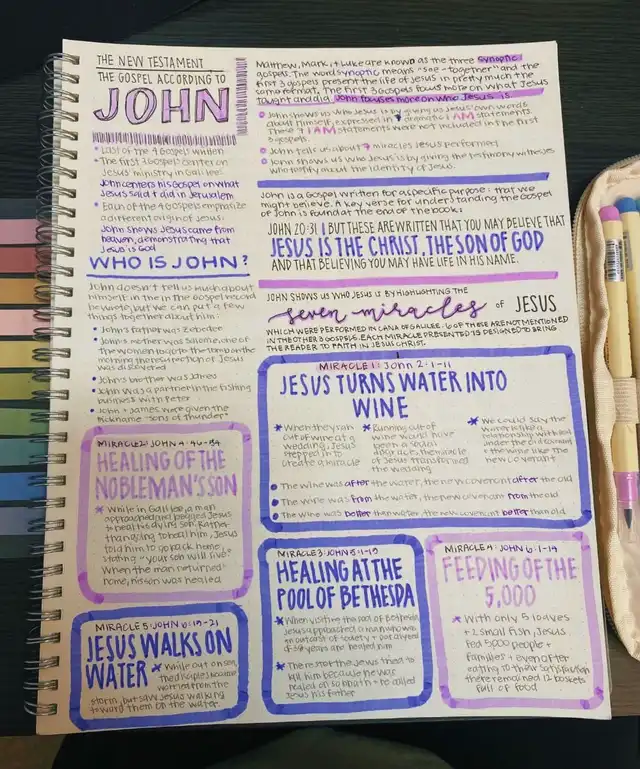 THE NEW TESTAMENT
THE GOSPEL ACCORDING TO
JOHN
Last of the 4 Gospels written
The first 3 Gospels center on
Jesus' ministry in Galilee;
John centers his Gospel on what
Jesus said & did in Jerusalem
Each of the 4 Gospels emphasize
a different origin of Jesus;
John shows Jesus came from
heaven, demonstrating that
Jesus is God
WHO IS JOHN?
John doesn't tell us much about
himself in the in the Gospel record
he wrote, but we can put a few
things together about him:
John's father was Zebedee
John's mother was Salome, one of
the women to go to the tomb on the
morning the resurrection of Jesus
was discovered
John's brother was James
John was a partner in the fishing
business with Peter
John & James were given the
nickname "sons of thunder"
Matthew, Mark, & Luke are known as the three synoptic
gospels. The word synoptic means "see-together" and the
first 3 gospels present the life of Jesus in pretty much the
same format. The first 3 Gospels focus more on what Jesus
taught and did; John focuses more on who Jesus is.
John shows us who Jesus is by giving us Jesus' own words
about himself, expressed in 7 dramatic I AM statements.
These 7 I AM statements were not included in the first
3 gospels.
John tells us about 7 miracles Jesus performed
John shows us who Jesus is by giving the testimony witnesses
who testify about the identity of Jesus.
John is a Gospel written for a specific purpose: that we
might believe. A key verse for understanding the Gospel
of John is found at the end of the book:
JOHN 20:31 | BUT THESE ARE WRITTEN THAT YOU MAY BELIEVE THAT
JESUS IS THE CHRIST, THE SON OF GOD
AND THAT BELIEVING YOU MAY HAVE LIFE IN HIS NAME.
JOHN SHOWS US WHO JESUS IS BY HIGHLIGHTING THE
seven miracles OF JESUS
WHICH WERE PERFORMED IN CANA OF GALILEE. 6 OF THESE ARE NOT MENTIONED
IN THE OTHER 3 GOSPELS. EACH MIRACLE PRESENTED IS DESIGNED TO BRING
THE READER TO FAITH IN JESUS CHRIST.
MIRACLE 1: John 2:1-11
JESUS TURNS WATER INTO
WINE
When they ran
out of wine at a
wedding, Jesus
stepped in to
create a miracle
Running out of
wine would have
been a social
disgrace, the miracle
of Jesus transformed
the wedding
We could say the
water is like a
relationship with God
under the old covenant
& the wine like the
new covenant
The wine was after the water, the new covenant after the old
The wine was from the water, the new covenant from the old
The wine was better than water, the new covenant better than old
MIRACLE 2: JOHN 4:46-54
HEALING OF THE
NOBLEMAN'S SON
While in Galilee, a man
approached and begged Jesus
to heal his dying son. Rather
than going to heal him, Jesus
told him to go back home,
stating "your son will live".
When the man returned
home, his son was healed
MIRACLE 3: JOHN 5:1-15
HEALING AT THE
POOL OF BETHESDA
When visiting the Pool of Bethesda
Jesus approached a man who was
an outcast of society & paralyzed
of 38 years and healed him
The rest of the Jews tried to
kill him because he was
healed on sabbath & he called
Jesus his father
MIRACLE 4: JOHN 6:1-14
FEEDING OF THE
5,000
With only 5 loaves
& 2 small fish, Jesus
fed 5,000 people &
families & even after
eating to their satisfaction
there remained 12 baskets
full of food
MIRACLE 5: JOHN 6:19-21
JESUS WALKS ON
WATER
While out on sea,
the disciples became
worried from the
storm, but saw Jesus walking
toward them on the water.